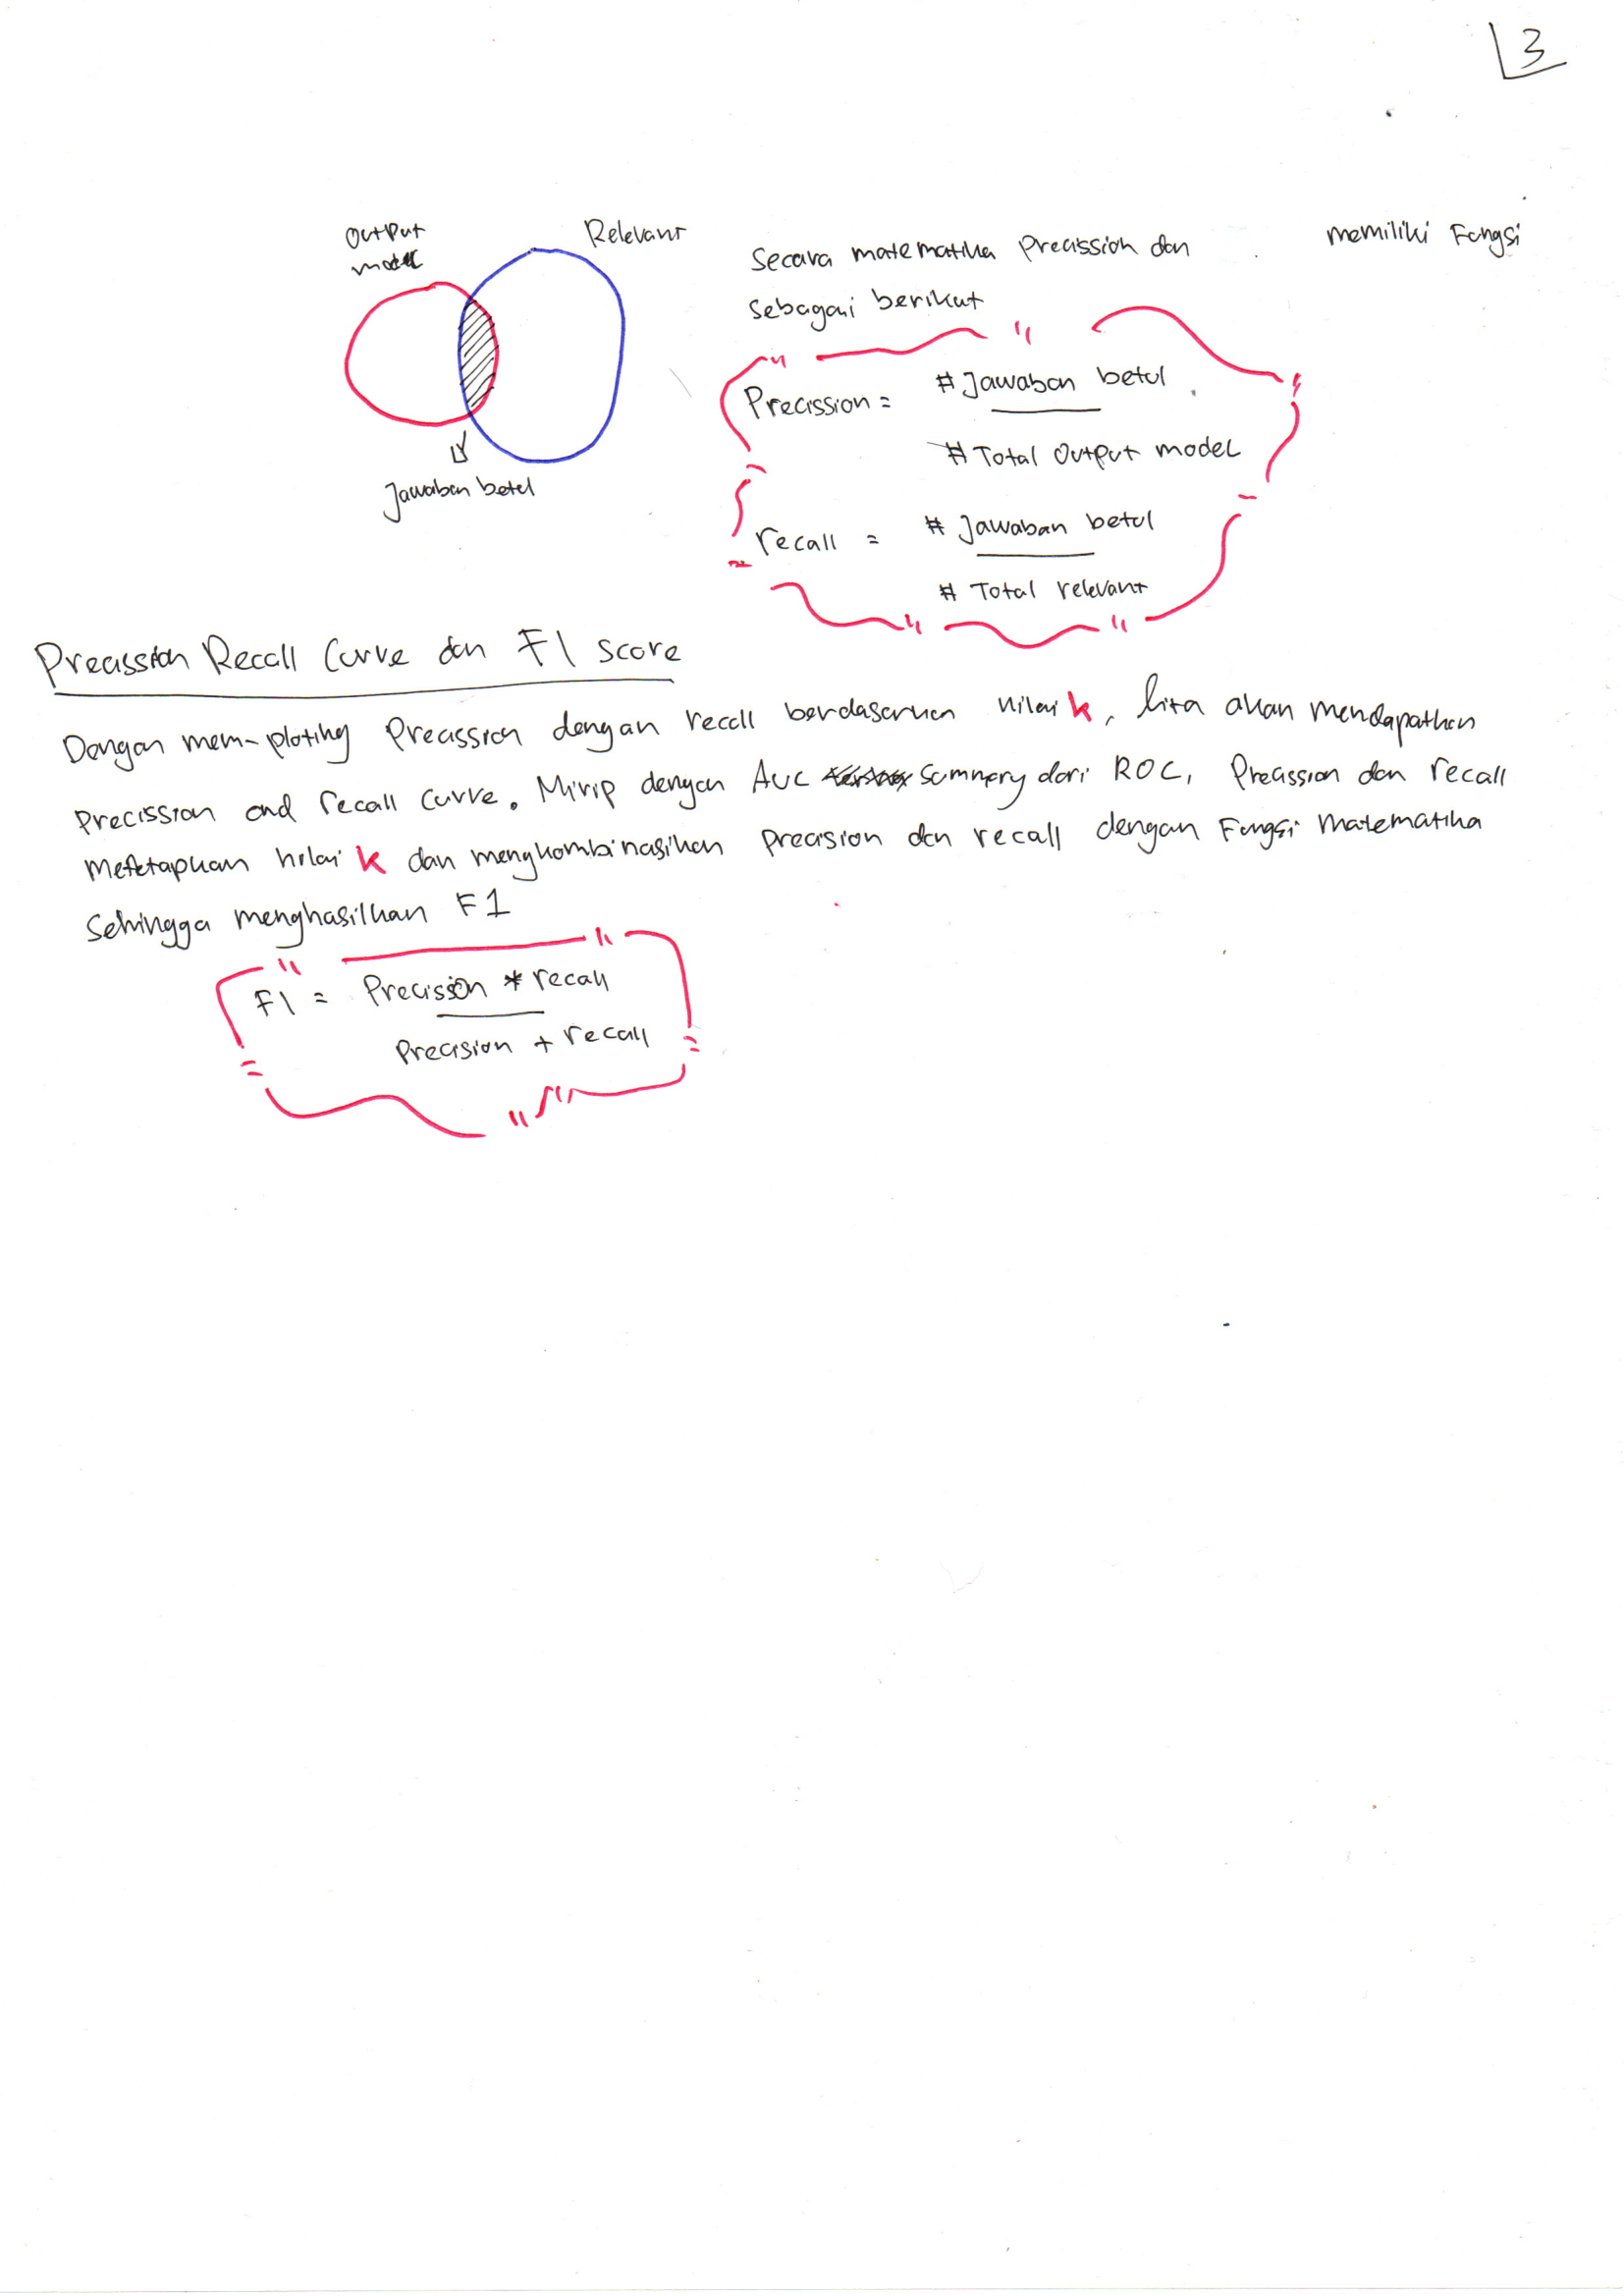 3
Output
model
Relevant
Jawaban betul
Secara matematika Precission dan memiliki Fungsi
sebagai berikut
Precission = # Jawaban betul
# Total Output model
recall = # Jawaban betul
# Total relevant
Precission Recall Curve dan F1 score
Dengan mem-ploting Precission dengan recall berdasarkan nilai k, kita akan mendapatkan
Precission and recall curve. Mirip dengan AUC summary dari ROC, Precission dan recall
menetapkan nilai k dan mengkombinasikan Precision dan recall dengan Fungsi matematika
Sehingga menghasilkan F1
F1 = Precission * recall
Precision + recall